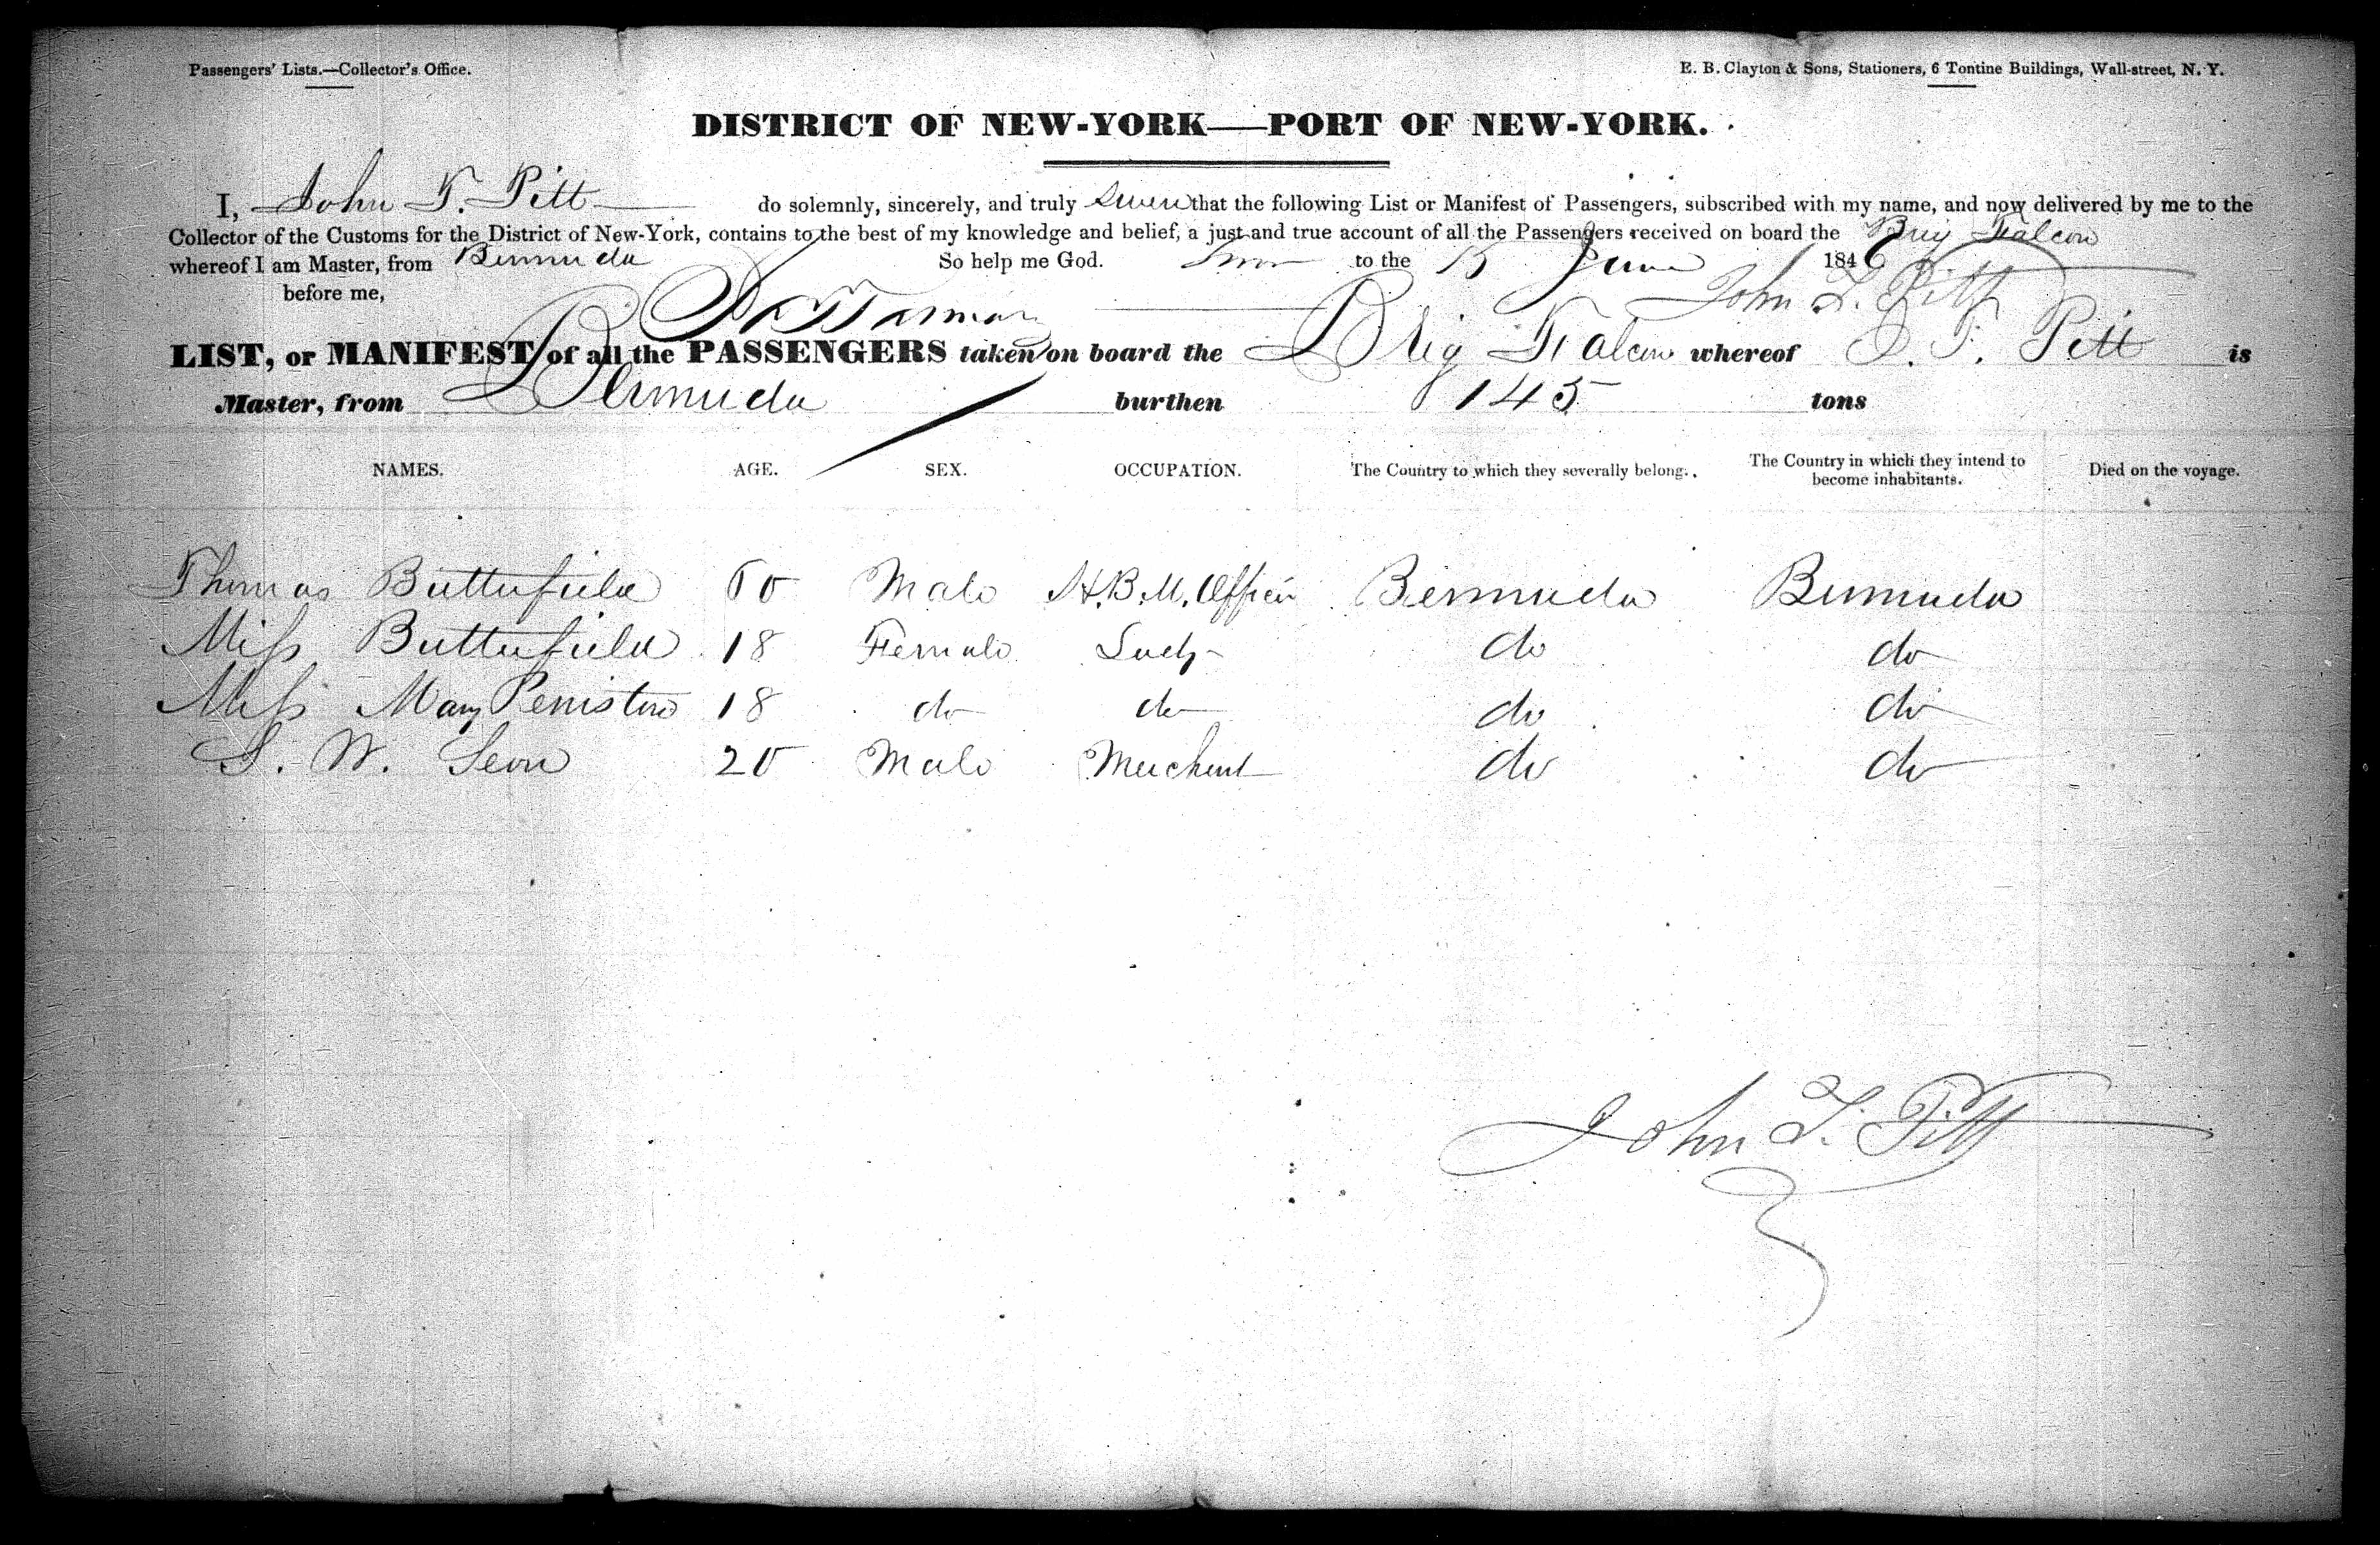 Passengers' Lists.—Collector's Office.
E. B. Clayton & Sons, Stationers, 6 Tontine Buildings, Wall-street, N. Y.
DISTRICT OF NEW-YORK—PORT OF NEW-YORK.
I, John T. Pitt do solemnly, sincerely, and truly swear that the following List or Manifest of Passengers, subscribed with my name, and now delivered by me to the
Collector of the Customs for the District of New-York, contains to the best of my knowledge and belief, a just and true account of all the Passengers received on board the Brig Falcon
whereof I am Master, from Bermuda So help me God. Sworn to the 15 June 1846
before me, John T. Pitt
LIST, or MANIFEST of all the PASSENGERS taken on board the Brig Falcon whereof J. T. Pitt is
Master, from Bermuda burthen 145 tons
NAMES. AGE. SEX. OCCUPATION. The Country to which they severally belong. The Country in which they intend to become inhabitants. Died on the voyage.
Thomas Butterfield 60 Male H.B.M. Officer Bermuda Bermuda
Miss Butterfield 18 Female Lady do do
Miss Mary Peniston 18 do do do do
S. W. Seon 20 Male Merchant do do
John T. Pitt